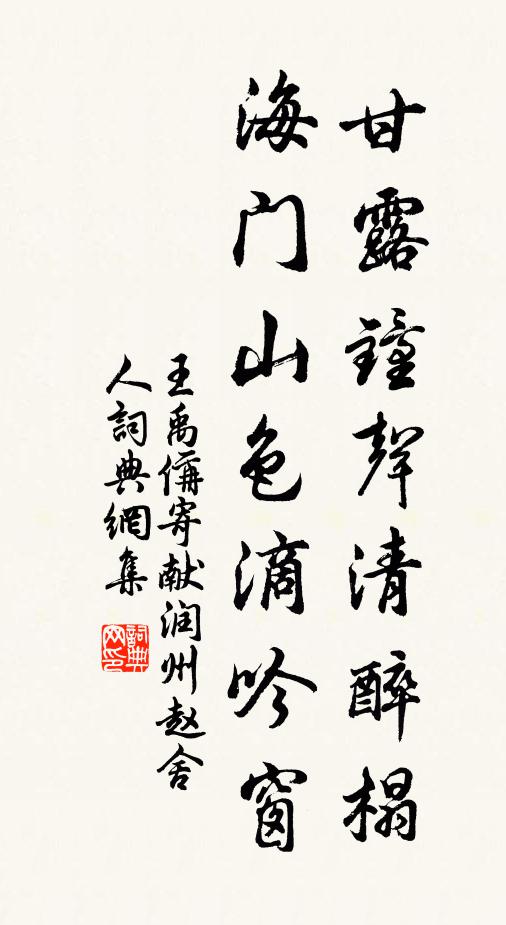 甘露鐘聲清醉榻
海門山色滴吟窗
王禹偁寄献润州赵舍
人詞典網集
詞典网印